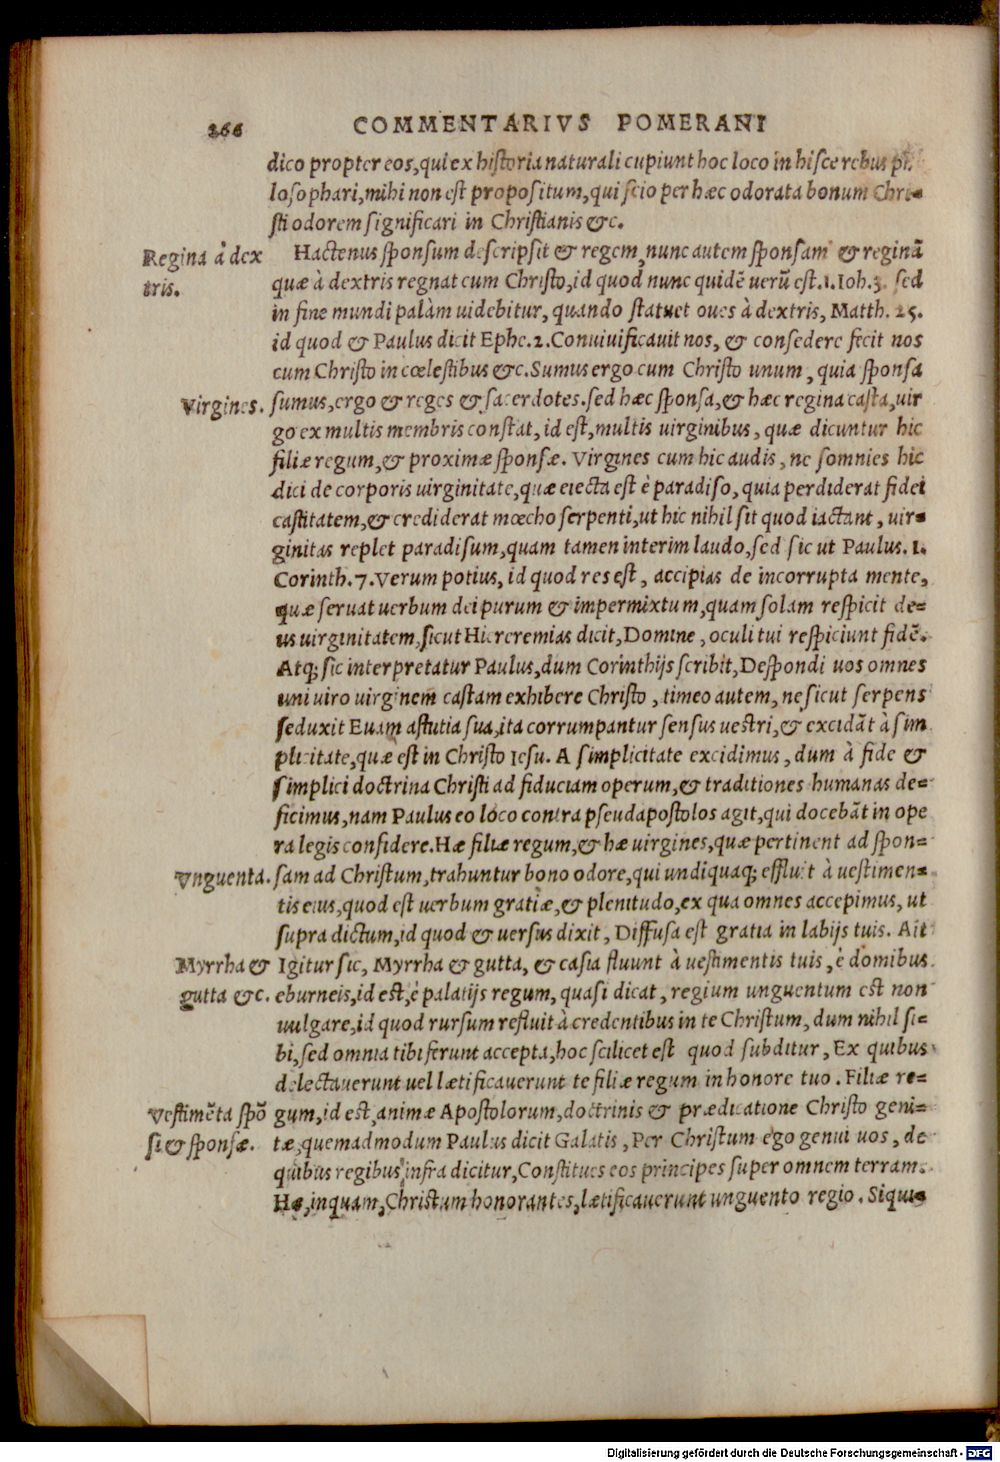 266 COMMENTARIVS POMERANI
dico propter eos, qui ex historia naturali cupiunt hoc loco in hisce rebus phi
losophari, mihi non est propositum, qui scio per hæc odorata bonum Chri=
sti odorem significari in Christianis &c.
Regina à dex
tris.
Hactenus sponsum descripsit & regem, nunc autem sponsam & reginã
quæ à dextris regnat cum Christo, id quod nunc quidẽ uerũ est. 1. Ioh. 3. sed
in fine mundi palàm uidebitur, quando statuet oues à dextris, Matth. 25.
id quod & Paulus dicit Ephe. 2. Conuiuificauit nos, & consedere fecit nos
cum Christo in cœlestibus &c. Sumus ergo cum Christo unum, quia sponsa
Virgines.
sumus, ergo & reges & sacerdotes. sed hæc sponsa, & hæc regina casta, uir
go ex multis membris constat, id est, multis uirginibus, quæ dicuntur hic
filiæ regum, & proximæ sponsæ. Virgines cum hic audis, ne somnies hic
dici de corporis uirginitate, quæ eiecta est è paradiso, quia perdiderat fidei
castitatem, & crediderat mœcho serpenti, ut hic nihil sit quod iactant, uir=
ginitas replet paradisum, quam tamen interim laudo, sed sic ut Paulus. 1.
Corinth. 7. Verum potius, id quod res est, accipias de incorrupta mente,
quæ seruat uerbum dei purum & impermixtum, quam solam respicit de=
us uirginitatem, sicut Hiereremias dicit, Domine, oculi tui respiciunt fidẽ.
Atq; sic interpretatur Paulus, dum Corinthijs scribit, Despondi uos omnes
uni uiro uirginem castam exhibere Christo, timeo autem, ne sicut serpens
seduxit Euam astutia sua, ita corrumpantur sensus uestri, & excidãt à sim
plicitate, quæ est in Christo Iesu. A simplicitate excidimus, dum à fide &
simplici doctrina Christi ad fiduciam operum, & traditiones humanas de=
ficimus, nam Paulus eo loco contra pseudapostolos agit, qui docebãt in ope
ra legis confidere. Hæ filiæ regum, & hæ uirgines, quæ pertinent ad spon=
Vnguenta.
sam ad Christum, trahuntur bono odore, qui undiquaq; effluit à uestimen=
tis eius, quod est uerbum gratiæ, & plenitudo, ex qua omnes accepimus, ut
supra dictum, id quod & uersus dixit, Diffusa est gratia in labijs tuis. Ait
Myrrha &
gutta &c.
Igitur sic, Myrrha & gutta, & casia fluunt à uestimentis tuis, è domibus
eburneis, id est, è palatijs regum, quasi dicat, regium unguentum est non
uulgare, id quod rursum refluit à credentibus in te Christum, dum nihil si=
bi, sed omnia tibi ferunt accepta, hoc scilicet est quod subditur, Ex quibus
delectauerunt uel lætificauerunt te filiæ regum in honore tuo. Filiæ re=
Vestimẽta spõ
si & sponsæ.
gum, id est, animæ Apostolorum, doctrinis & prædicatione Christo geni=
tæ, quemadmodum Paulus dicit Galatis, Per Christum ego genui uos, de
quibus regibus infra dicitur, Constitues eos principes super omnem terram.
Hæ, inquam, Christum honorantes, lætificauerunt unguento regio. Siquis
Digitalisierung gefördert durch die Deutsche Forschungsgemeinschaft - DFG